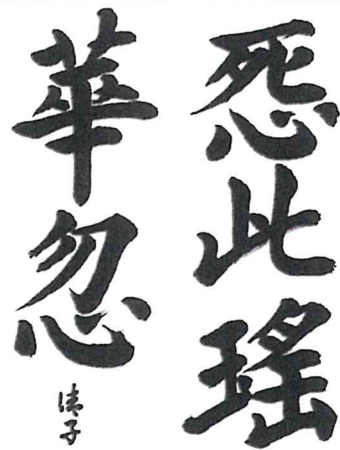 怨此瑶
華忽
清子